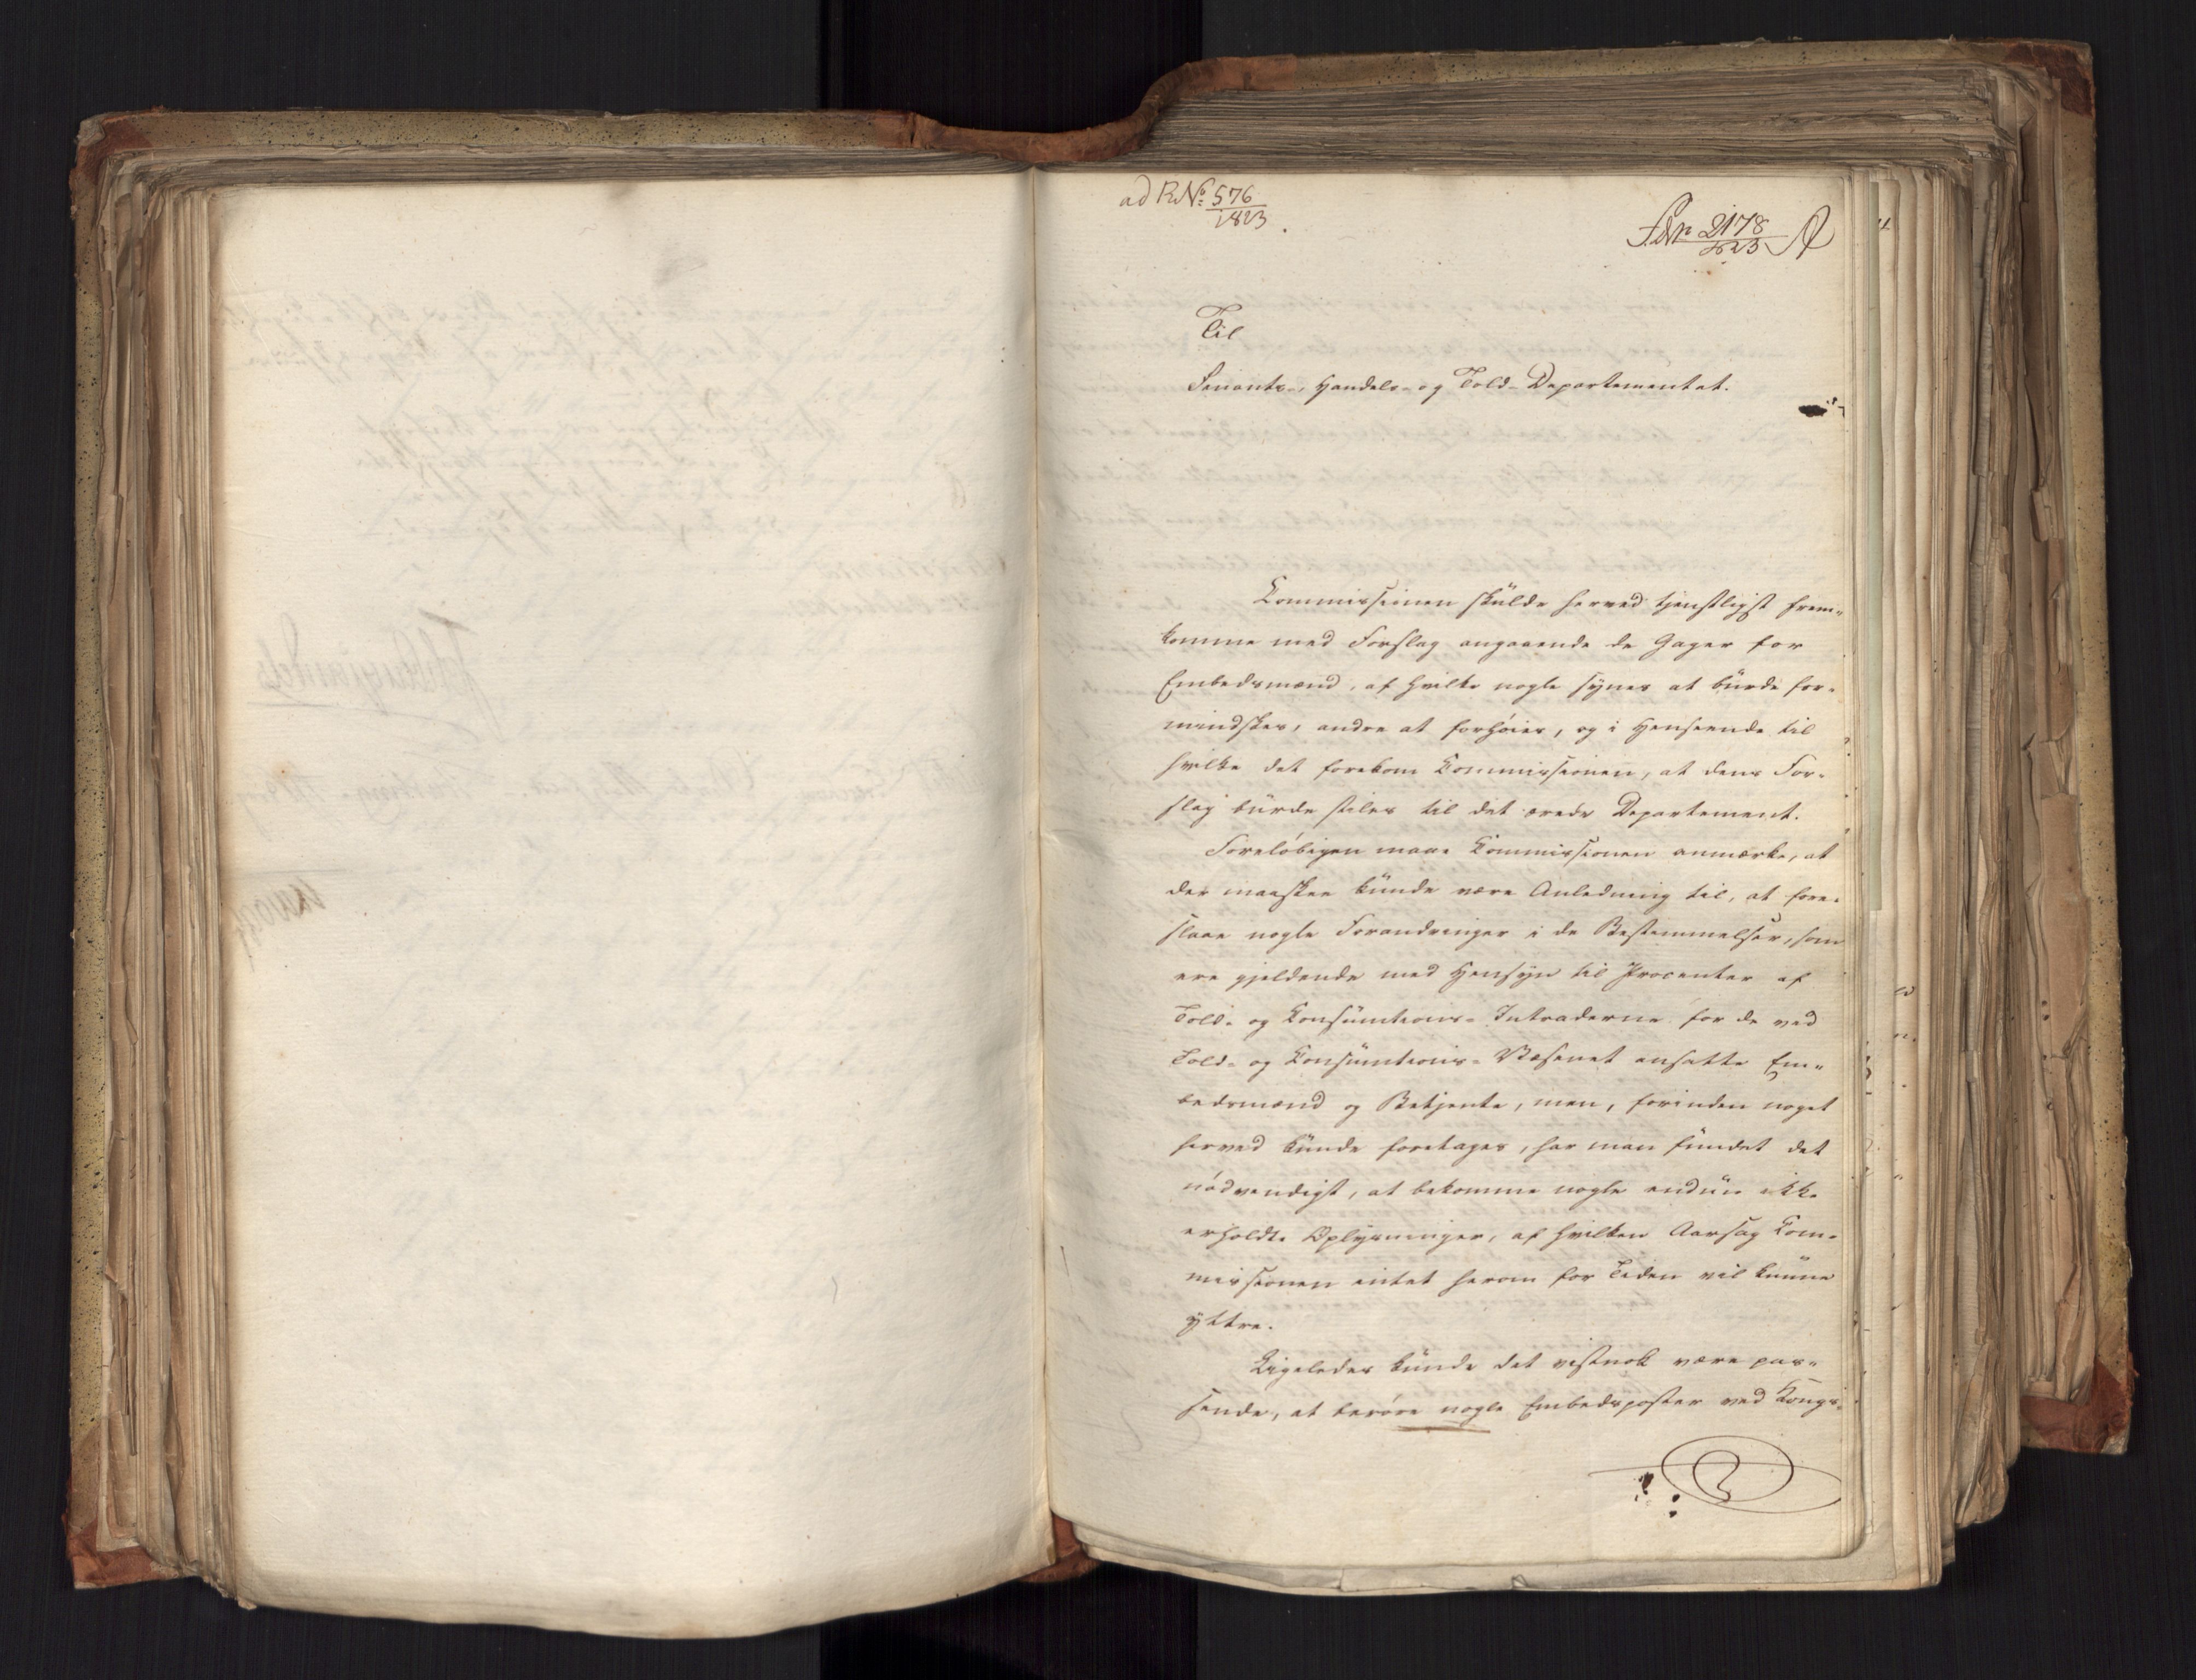 ad R.No. 576
1823.
2178
1823
Til
Finants-, Handels- og Told-Departementet.
Commissionen skulde herved tjenstligst frem-
komme med Forslag angaaende de Gager for
Embedsmænd, af hvilke nogle synes at burde for-
mindskes, andre at forhöies, og i Henseende til
hvilke det forekom Commissionen, at dens For-
slag burde stiles til det ærede Departement.
Foreløbigen maae Commissionen anmærke, at
der maaskee kunde være Anledning til, at fore-
slaae nogle Forandringer i de Bestemmelser, som
ere gjeldende med Hensyn til Procenter af
Told- og Consumtions-Intraderne for de ved
Told- og Consumtions-Væsenet ansatte Em-
bedsmænd og Betjente, men, forinden noget
herved kunde foretages, har man fundet det
nödvendigt, at bekomme nogle endnu ikke
erholdte Oplysninger, af hvilken Aarsag Com-
missionen intet herom for Tiden vil kunne
yttre.
Ligeledes kunde det vistnok være pas-
sende, at berøre nogle Embedsposter ved Kongs-